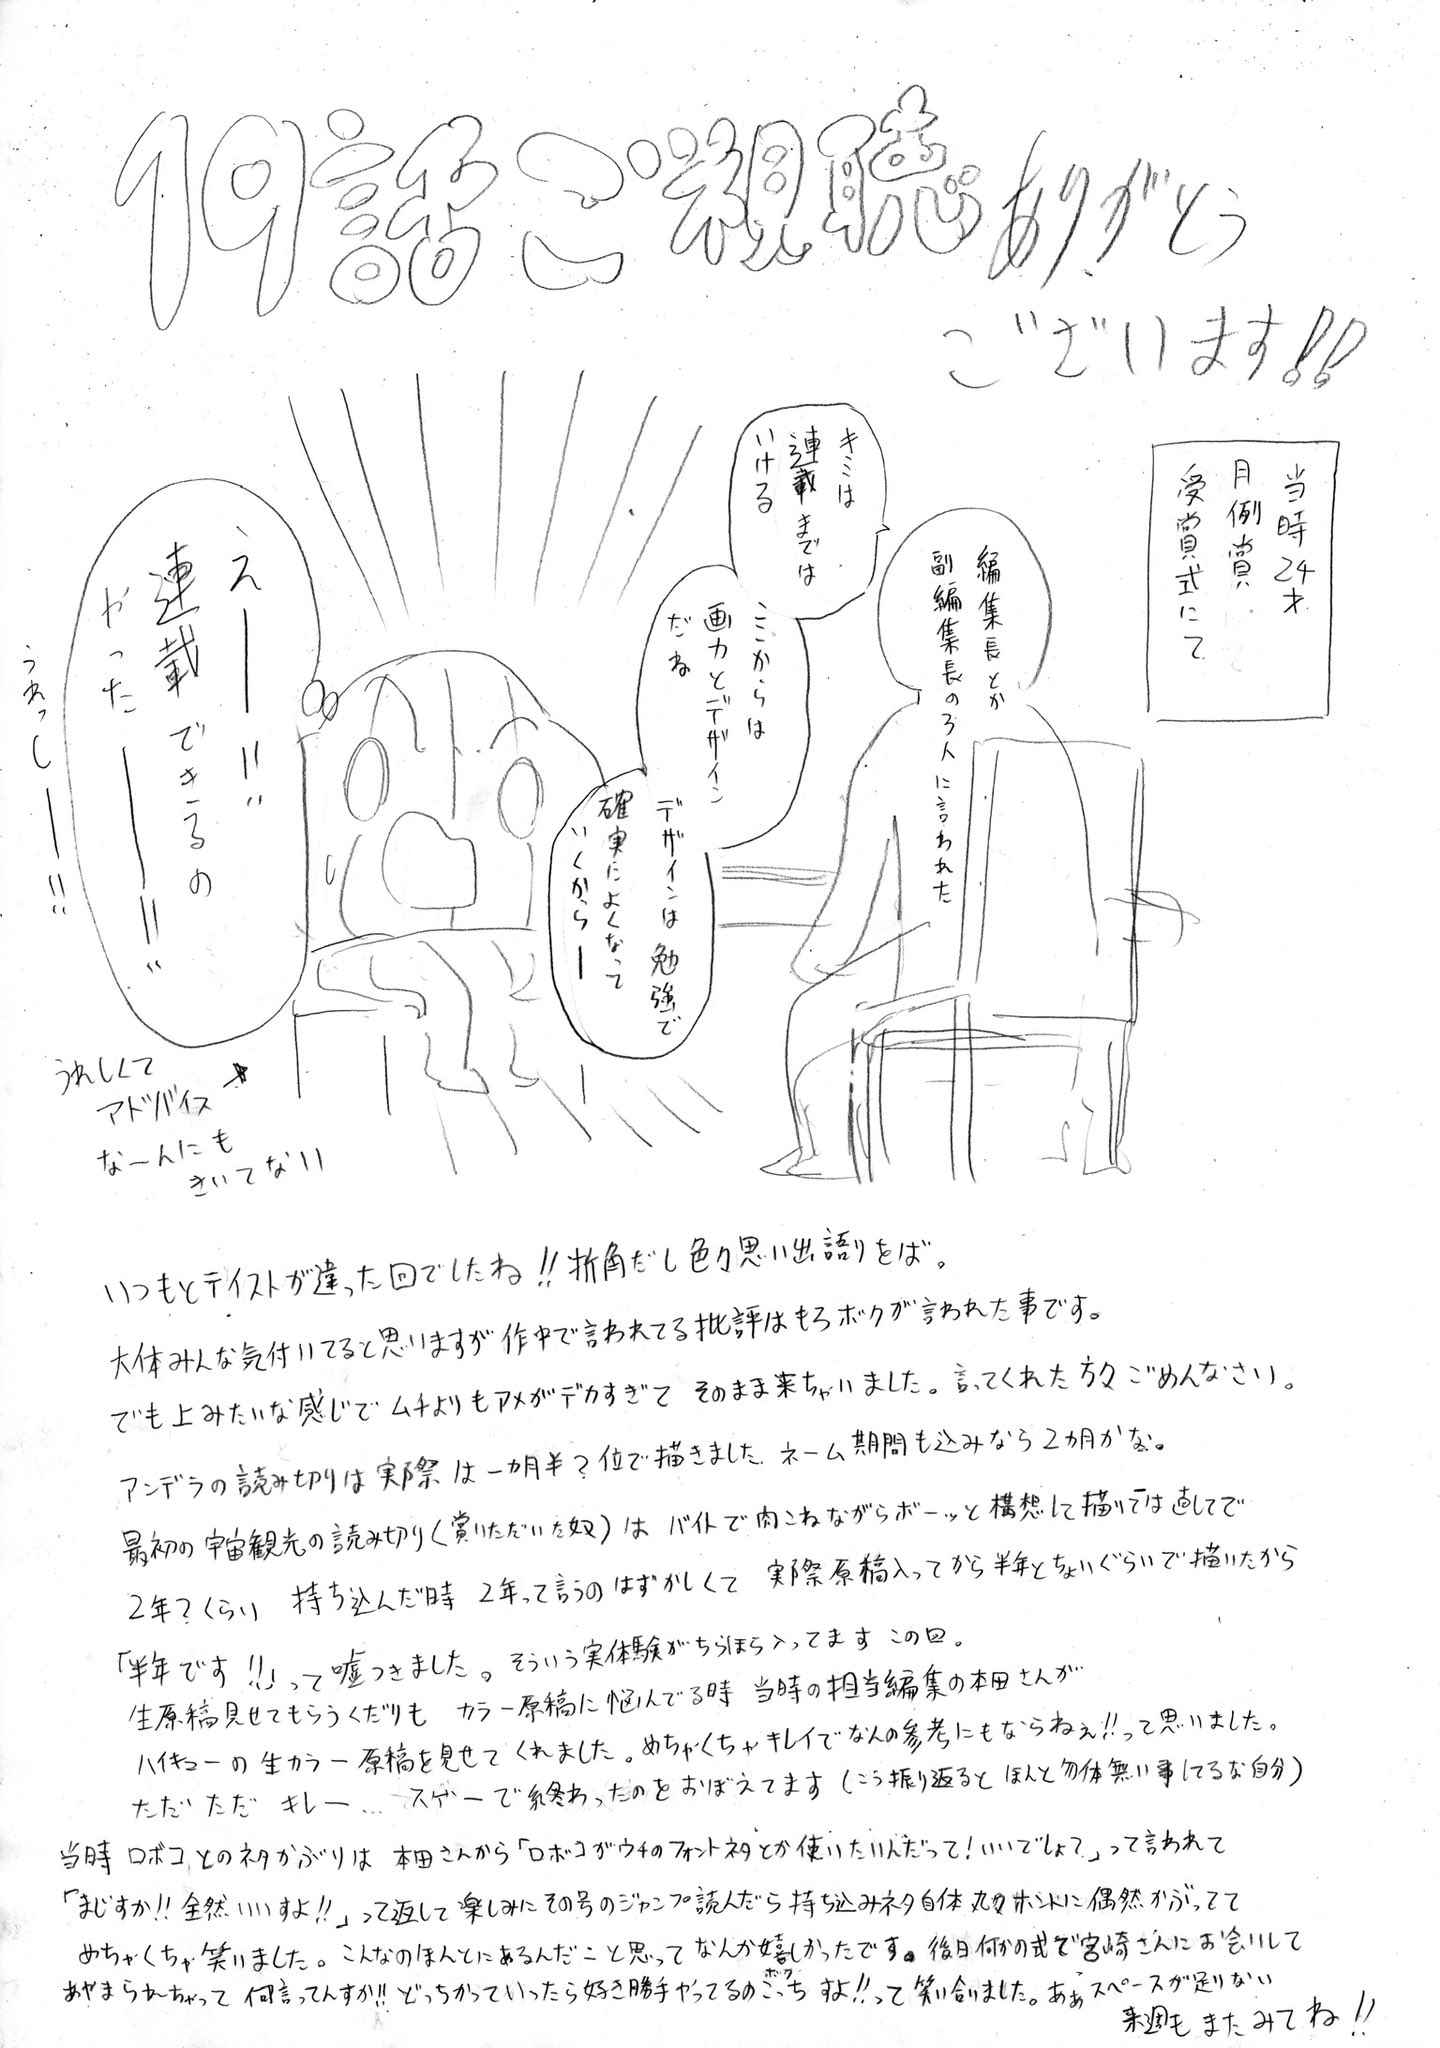 19話ご視聴ありがとう
ございます!!
当時24才
月例賞
受賞式にて
編集長とか
副編集長の3人に言われた
キミは
連載までは
いける
ここからは
画力とデザイン
だね
デザインは勉強で
確実によくなって
いくからー
えー!!
連載できるの
やったー!!
うれっしーー!!
うれしくて
アドバイス
なーんにも
きいてない
いつもとテイストが違った回でしたね!!折角だし色々思い出語りをば。
大体みんな気付いてると思いますが作中で言われてる批評はもろボクが言われた事です。
でも上みたいな感じでムチよりもアメがデカすぎてそのまま来ちゃいました。言ってくれた方々ごめんなさい。
アンデラの読み切りは実際は一カ月半?位で描きました。ネーム期間も込みなら2カ月かな。
最初の宇宙観光の読み切り(賞いただいた奴)は バイトで肉こねながらボーッと構想して描いては直してで
2年?くらい 持ち込んだ時 2年って言うのはずかしくて 実際原稿入ってから半年とちょいぐらいで描いたから
「半年です!!」って嘘つきました。そういう実体験がちらほら入ってます この回。
生原稿見せてもらうくだりも カラー原稿に悩んでる時 当時の担当編集の本田さんが
ハイキューの生カラー原稿を見せてくれました。めちゃくちゃキレイでなんの参考にもならねぇ!!って思いました。
ただただ キレー… スゲーで終わったのをおぼえてます(こう振り返ると ほんと勿体無い事してるな自分)
当時 ロボコとのネタかぶりは 本田さんから「ロボコがウチのフォントネタとか使いたいんだって!いいでしょ?」って言われて
「まじすか!!全然いいすよ!!」って返して楽しみにその号のジャンプ読んだら持ち込みネタ自体丸々ホントに偶然かぶってて
めちゃくちゃ笑いました。こんなのほんとにあるんだこと思ってなんか嬉しかったです。後日何かの式で宮崎さんにお会いして
あやまられちゃって 何言ってんすか!!どっちかっていったら好き勝手やってるのこっち(ボク)すよ!!って笑い合いました。あぁスペースが足りない
来週もまたみてね!!